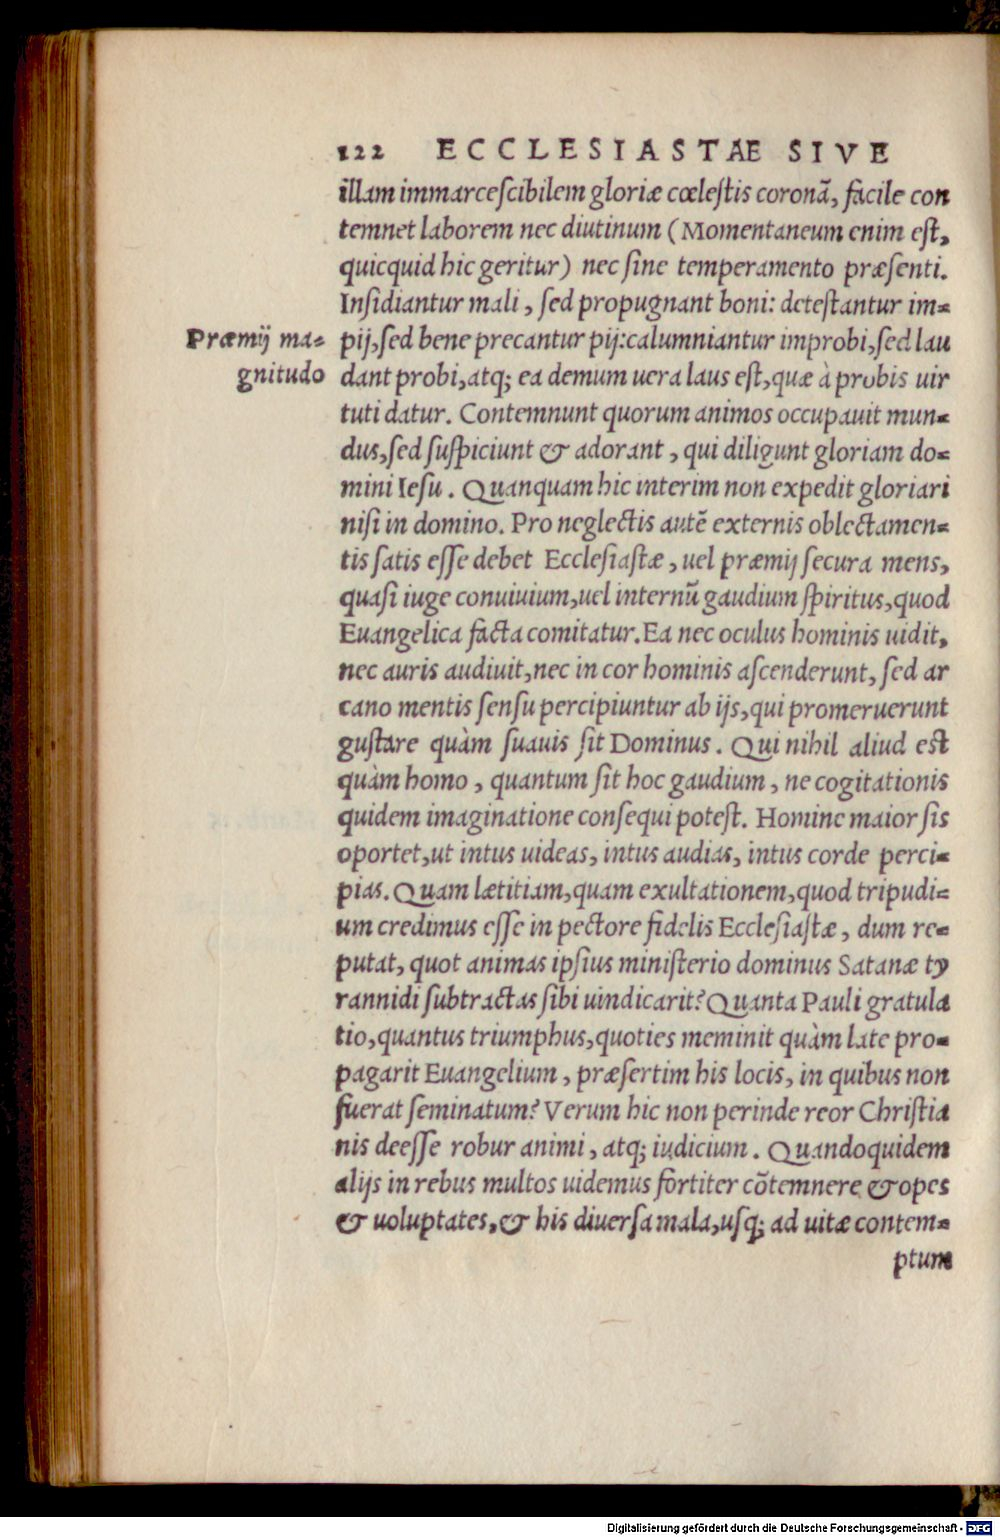 122 ECCLESIASTAE SIVE
illam immarcescibilem gloriæ cœlestis coronã, facile con
temnet laborem nec diutinum (Momentaneum enim est,
quicquid hic geritur) nec sine temperamento præsenti.
Insidiantur mali, sed propugnant boni: detestantur im-
Præmij ma-
gnitudo
pij, sed bene precantur pij: calumniantur improbi, sed lau
dant probi, atq; ea demum uera laus est, quæ à probis uir
tuti datur. Contemnunt quorum animos occupauit mun-
dus, sed suspiciunt & adorant, qui diligunt gloriam do-
mini Iesu. Quanquam hic interim non expedit gloriari
nisi in domino. Pro neglectis autẽ externis oblectamen-
tis satis esse debet Ecclesiastæ, uel præmij secura mens,
quasi iuge conuiuium, uel internũ gaudium spiritus, quod
Euangelica facta comitatur. Ea nec oculus hominis uidit,
nec auris audiuit, nec in cor hominis ascenderunt, sed ar
cano mentis sensu percipiuntur ab ijs, qui promeruerunt
gustare quàm suauis sit Dominus. Qui nihil aliud est
quàm homo, quantum sit hoc gaudium, ne cogitationis
quidem imaginatione consequi potest. Homine maior sis
oportet, ut intus uideas, intus audias, intus corde perci-
pias. Quam lætitiam, quam exultationem, quod tripudi-
um credimus esse in pectore fidelis Ecclesiastæ, dum re-
putat, quot animas ipsius ministerio dominus Satanæ ty
rannidi subtractas sibi uindicarit? Quanta Pauli gratula
tio, quantus triumphus, quoties meminit quàm late pro-
pagarit Euangelium, præsertim his locis, in quibus non
fuerat seminatum? Verum hic non perinde reor Christia
nis deesse robur animi, atq; iudicium. Quandoquidem
alijs in rebus multos uidemus fortiter cõtemnere & opes
& uoluptates, & his diuersa mala, usq; ad uitæ contem-
ptum
Digitalisierung gefördert durch die Deutsche Forschungsgemeinschaft - DFG